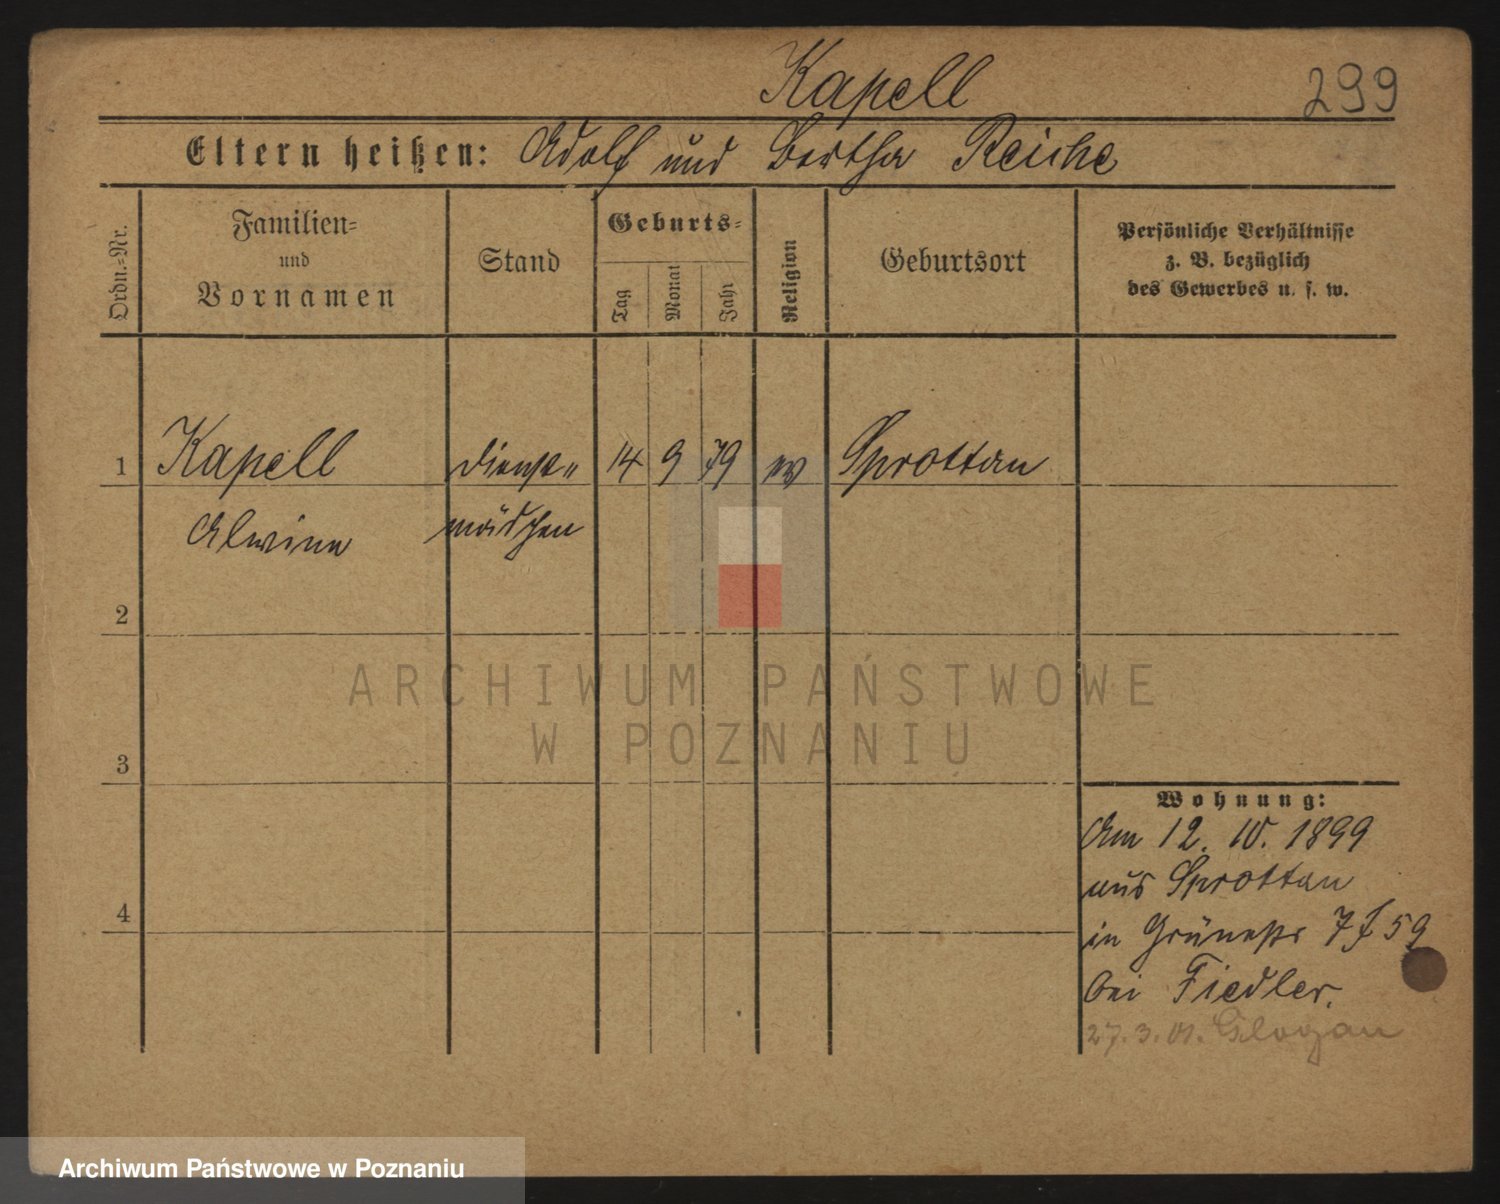 Kapell 299
Eltern heißen: Adolf und Bertha Reiche
Ordn.-Nr.
Familien-
und
Vornamen
Stand
Geburts-
Tag
Monat
Jahr
Religion
Geburtsort
Persönliche Verhältnisse
z. B. bezüglich
des Gewerbes u. s. w.
1 Kapell Dienst- 14 9 79 ev Sprottau
Alwine mädchen
2
3
4
Wohnung:
Am 12. 10. 1899
aus Sprottau
in Grünestr 7 59
bei Fiedler.
27.3.01. Glogau
ARCHIWUM PAŃSTWOWE
W POZNANIU
Archiwum Państwowe w Poznaniu